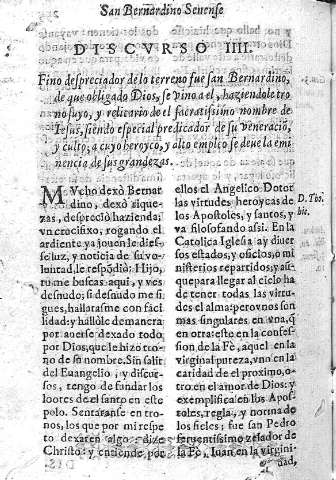 San Bernardino Senense
DISCVRSO IIII.
Fino despreciador de lo terreno fue san Bernardino,
de que obligado Dios, se vino a el, haziendole tro
no suyo, y relicario del sacratissimo nombre de
Iesus, siendo especial predicador de su veneració,
y culto; a cuyo heroyco, y alto empleo se deue la emi
nencia de sus grandezas.
MVcho dexò Bernar
dino, dexò rique-
zas, despreciò hazienda;
vn crucifixo, rogando el
ardiente ya jouen le dies-
se luz, y noticia de su vo-
luntad, le respòdiò: Hijo,
tu me buscas aqui, y ves
desnudo; si desnudo me si
gues, hallarasme con faci
lidad: y hallòle de manera
por auerse dexado todo
por Dios, que le hizo tro-
no de su nombre. Sin salir
del Euangelio, y discur-
sos, tengo de fundar los
loores del santo en este
polo. Sentaranse en tro-
nos, los que por mi respe
to dexaren algo: dize
Christo: y entiende por
ellos el Angelico Dotor
las virtudes heroycas de
los Apostoles, y santos, y
va filosofando assi. En la
Catolica Iglesia ay diuer
sos estados, y oficios, o mi
nisterios repartidos; y aũ
que para llegar al cielo ha
de tener todas las virtu-
des el alma: pero vnos son
mas singulares en vna, q̃
en otra: esto en la confes-
sion de la Fè, aquel en la
virginal pureza, vno en la
caridad de el proximo, o-
tro en el amor de Dios: y
exemplifica en los Apos-
toles, regla, y norma de
los fieles: fue san Pedro
feruentissimo zelador de
la Fè, Iuan en la virgini-
dad,
D. Tho.
hic.